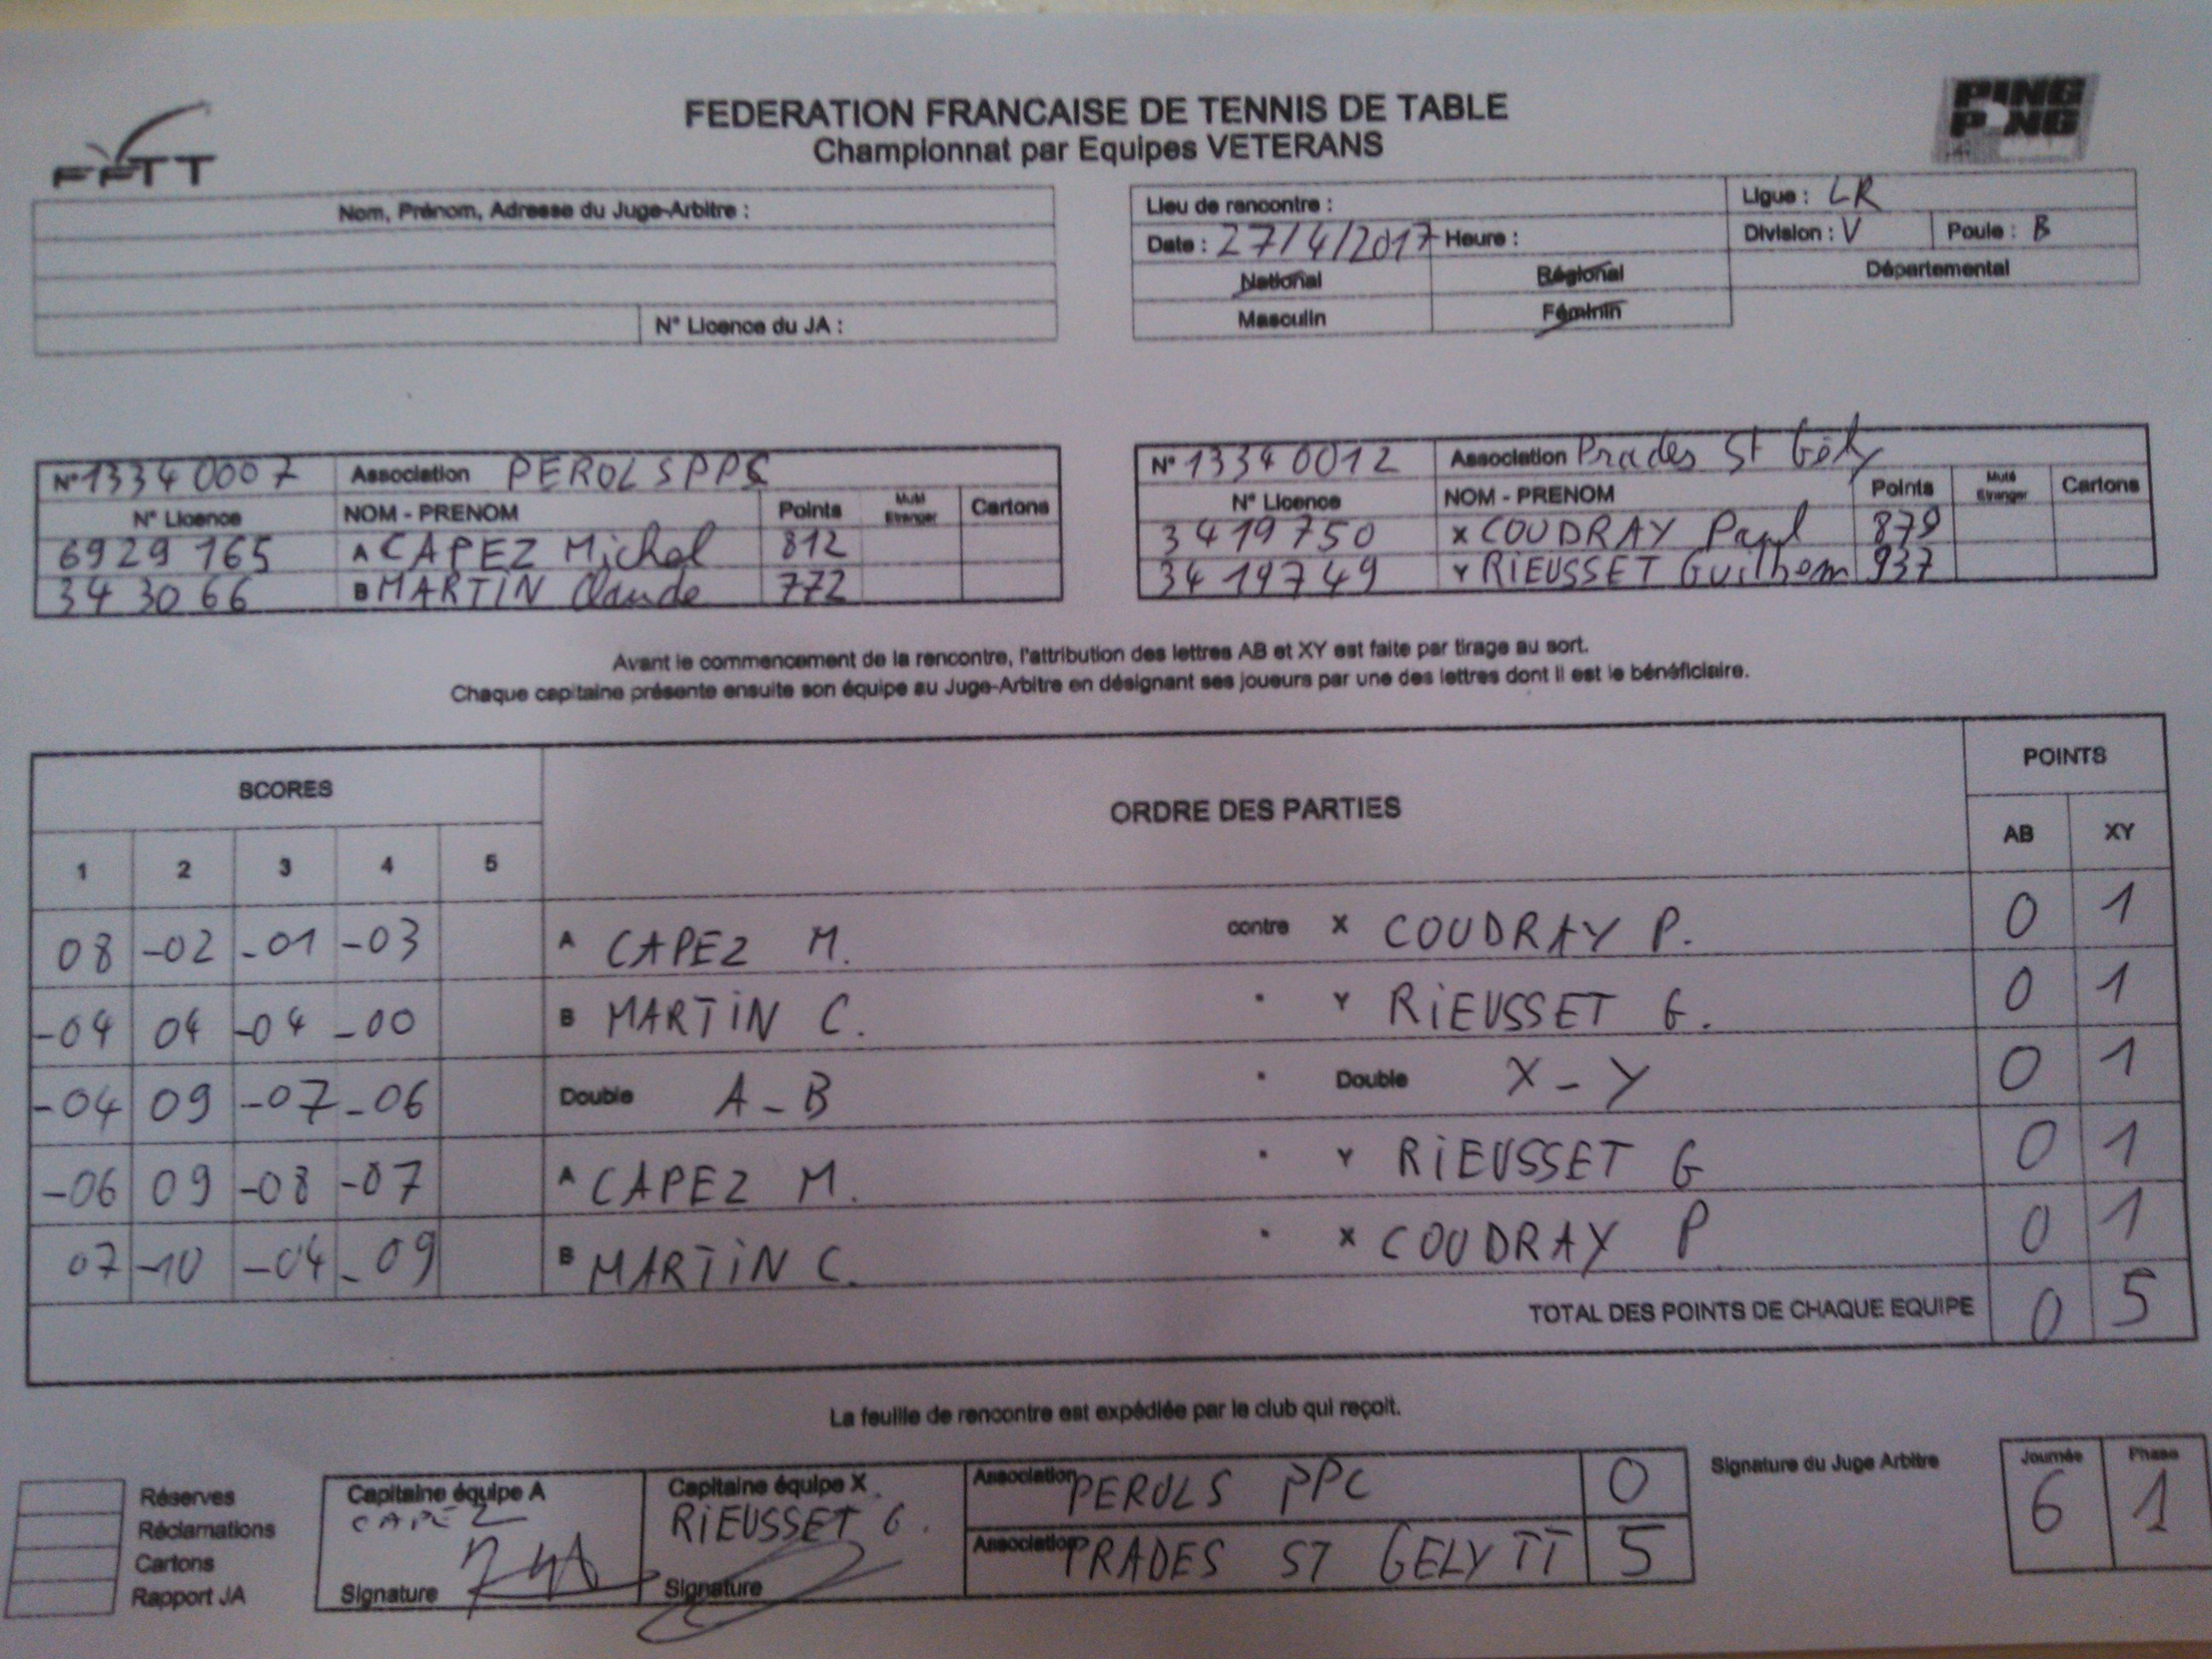 FEDERATION FRANCAISE DE TENNIS DE TABLE
Championnat par Equipes VETERANS
FFTT
PING PONG
Nom, Prénom, Adresse du Juge-Arbitre :
N° Licence du JA :
Lieu de rencontre :
Ligue : LR
Date : 27/4/2017 Heure :
Division : V Poule : B
National Régional Départemental
Masculin Féminin
N° 13340007 Association PEROLS PPC
N° Licence NOM - PRENOM Points Muté Etranger Cartons
6929165 A CAPEZ Michel 812
343066 B MARTIN Claude 772
N° 13340012 Association Prades St Gély
N° Licence NOM - PRENOM Points Muté Etranger Cartons
3419750 X COUDRAY Paul 879
3419749 Y RIEUSSET Guilhem 937
Avant le commencement de la rencontre, l'attribution des lettres AB et XY est faite par tirage au sort.
Chaque capitaine présente ensuite son équipe au Juge-Arbitre en désignant ses joueurs par une des lettres dont il est le bénéficiaire.
SCORES ORDRE DES PARTIES POINTS
1 2 3 4 5 AB XY
08 -02 -01 -03 A CAPEZ M. contre X COUDRAY P. 0 1
-04 04 -04 -00 B MARTIN C. " Y RIEUSSET G. 0 1
-04 09 -07 -06 Double A-B " Double X-Y 0 1
-06 09 -08 -07 A CAPEZ M. " Y RIEUSSET G 0 1
07 -10 -04 -09 B MARTIN C. " X COUDRAY P 0 1
TOTAL DES POINTS DE CHAQUE EQUIPE 0 5
La feuille de rencontre est expédiée par le club qui reçoit.
Réserves
Réclamations
Cartons
Rapport JA
Capitaine équipe A
CAPEZ
Signature
Capitaine équipe X
RIEUSSET G.
Signature
Association PEROLS PPC 0
Association PRADES ST GELY TT 5
Signature du Juge Arbitre
Journée Phase
6 1